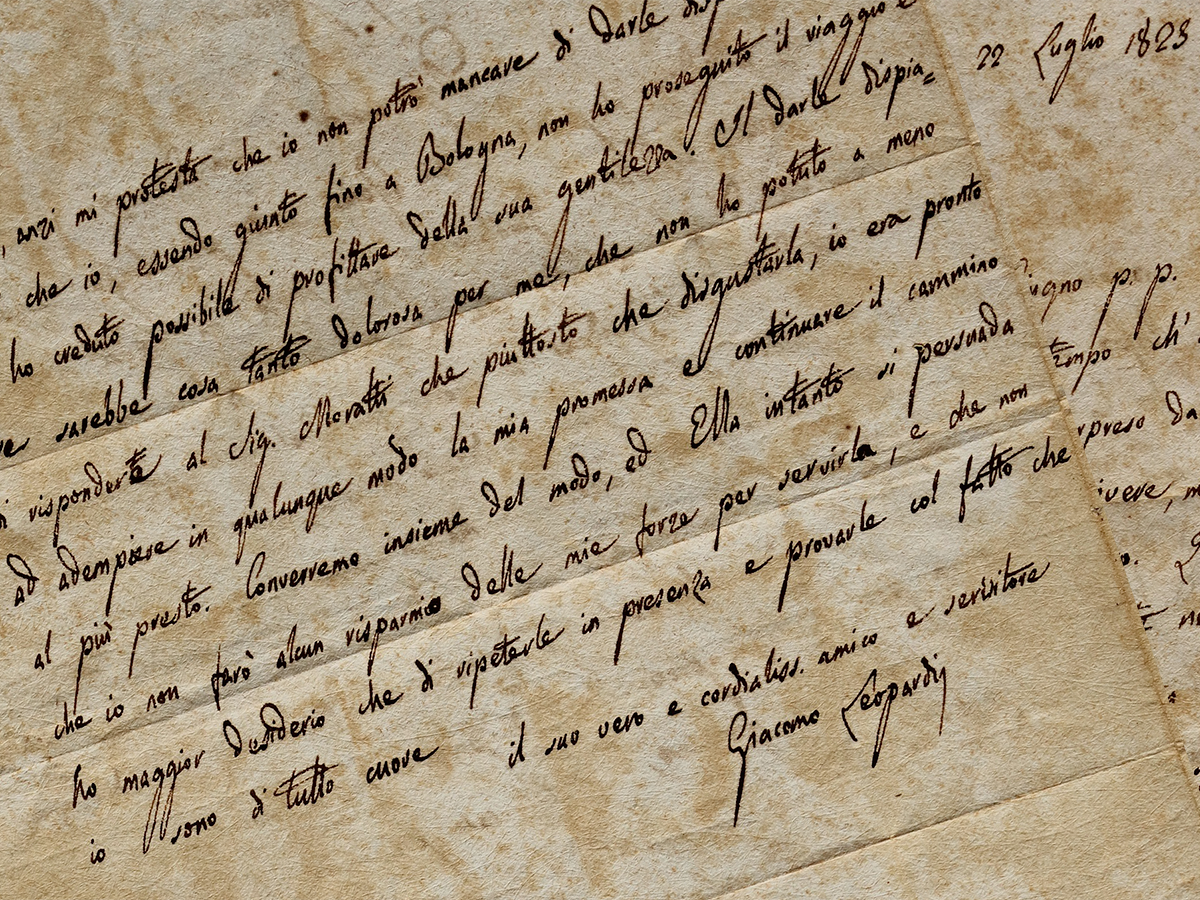 , anzi mi protesta che io non potrò mancare di darle disp
che io, essendo giunto fino a Bologna, non ho proseguito il viaggio e
ho creduto possibile di profittare della sua gentilezza. Il darle dispia=
re sarebbe cosa tanto dolorosa per me, che non ho potuto a meno
i risponderte al Sig. Moratti che piuttosto che disgustarla, io era pronto
ad adempiere in qualunque modo la mia promessa e continuare il cammino
al più presto. Converremo insieme del modo, ed Ella intanto si persuada
che io non farò alcun risparmio delle mie forze per servirla, e che non
ho maggior desiderio che di ripeterle in presenza e provarle col fatto che
io sono di tutto cuore il suo vero e cordialiss. amico e servitore
Giacomo Leopardi
22 Luglio 1823
igno p. p.
tempo ch'
rpreso da
ivere, m
o.